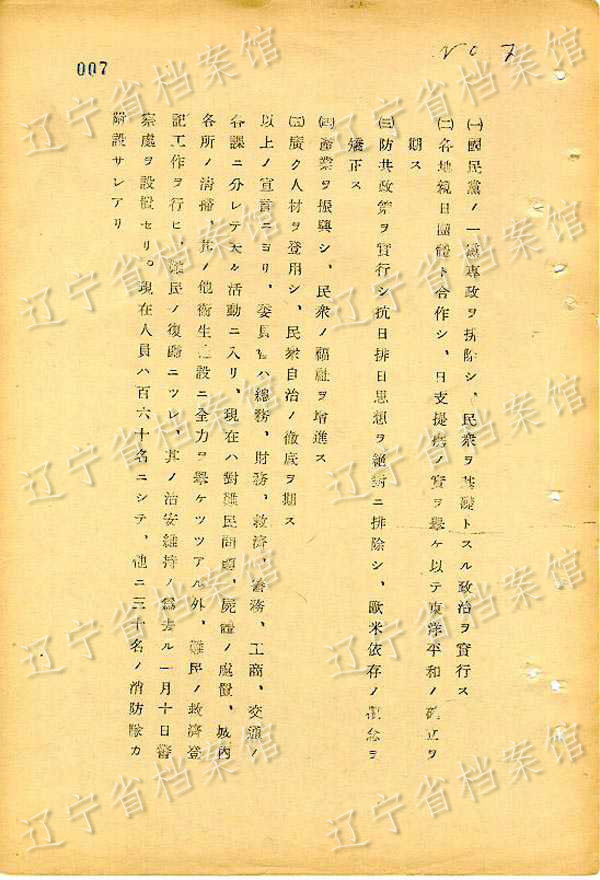 007
No 7
㈠國民黨ノ一黨專政ヲ排除シ、民衆ヲ基礎トスル政治ヲ實行ス
㈡各地親日團體ト合作シ、日支提携ノ實ヲ擧ケ以テ東洋平和ノ確立ヲ
期ス
㈢防共政策ヲ實行シ抗日排日思想ヲ絶對ニ排除シ、歐米依存ノ觀念ヲ
矯正ス
㈣產業ヲ振興シ、民衆ノ福祉ヲ增進ス
㈤廣ク人材ヲ登用シ、民衆自治ノ徹底ヲ期ス
以上ノ宣言ニヨリ、委員會ハ總務、財務、救濟、警務、工商、交通ノ
各課ニ分レテ大ル活動ニ入リ、現在ハ對難民問題、屍體ノ處置、城內
各所ノ淸掃、其ノ他衞生施設ニ全力ヲ擧ケツツアル外、難民ノ救濟登
記工作ヲ行ヒ、難民ノ復歸ニツレ、其ノ治安維持ノ爲去ル一月十日警
察處ヲ設置セリ。現在人員ハ百六十名ニシテ、他ニ三十名ノ消防隊カ
附設サレアリ
辽宁省档案馆